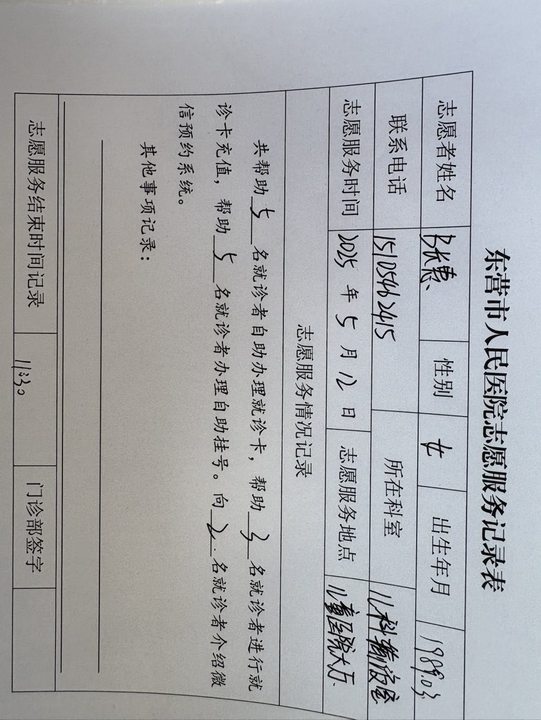 东营市人民医院志愿服务记录表
志愿者姓名 性别 女 出生年月 1989.03
联系电话 15105462415 所在科室 儿科输液室
志愿服务时间 2025 年 5 月 12 日 志愿服务地点 儿童医院大厅
志愿服务情况记录
共帮助 5 名就诊者自助办理就诊卡，帮助 3 名就诊者进行就
诊卡充值，帮助 5 名就诊者办理自助挂号。向 2 名就诊者介绍微
信预约系统。
其他事项记录：
志愿服务结束时间记录 11:30 门诊部签字